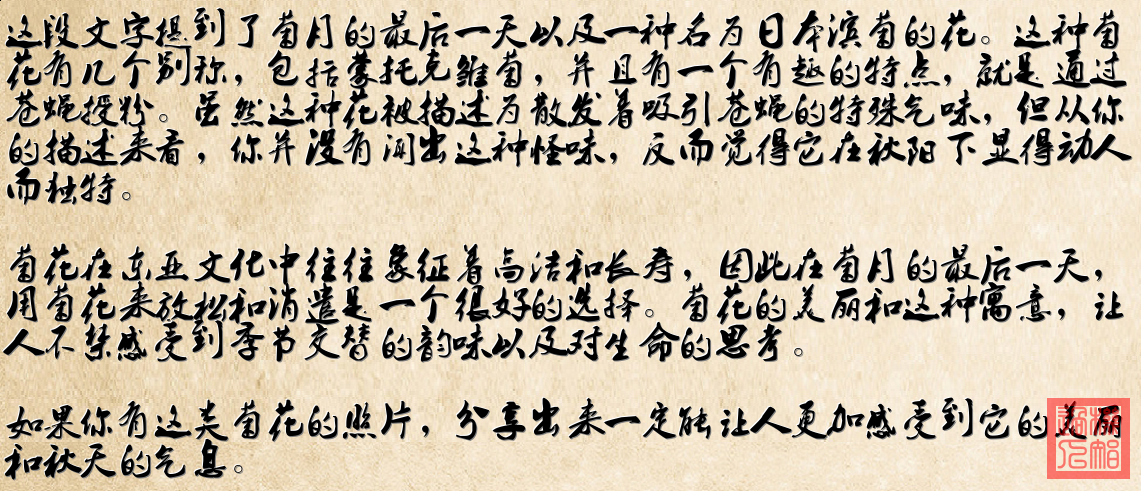 这段文字提到了菊月的最后一天以及一种名为日本滨菊的花。这种菊
花有几个别称，包括蒙托克雏菊，并且有一个有趣的特点，就是通过
苍蝇授粉。虽然这种花被描述为散发着吸引苍蝇的特殊气味，但从你
的描述来看，你并没有闻出这种怪味，反而觉得它在秋阳下显得动人
而独特。
菊花在东亚文化中往往象征着高洁和长寿，因此在菊月的最后一天，
用菊花来放松和消遣是一个很好的选择。菊花的美丽和这种寓意，让
人不禁感受到季节交替的韵味以及对生命的思考。
如果你有这类菊花的照片，分享出来一定能让人更加感受到它的美丽
和秋天的气息。